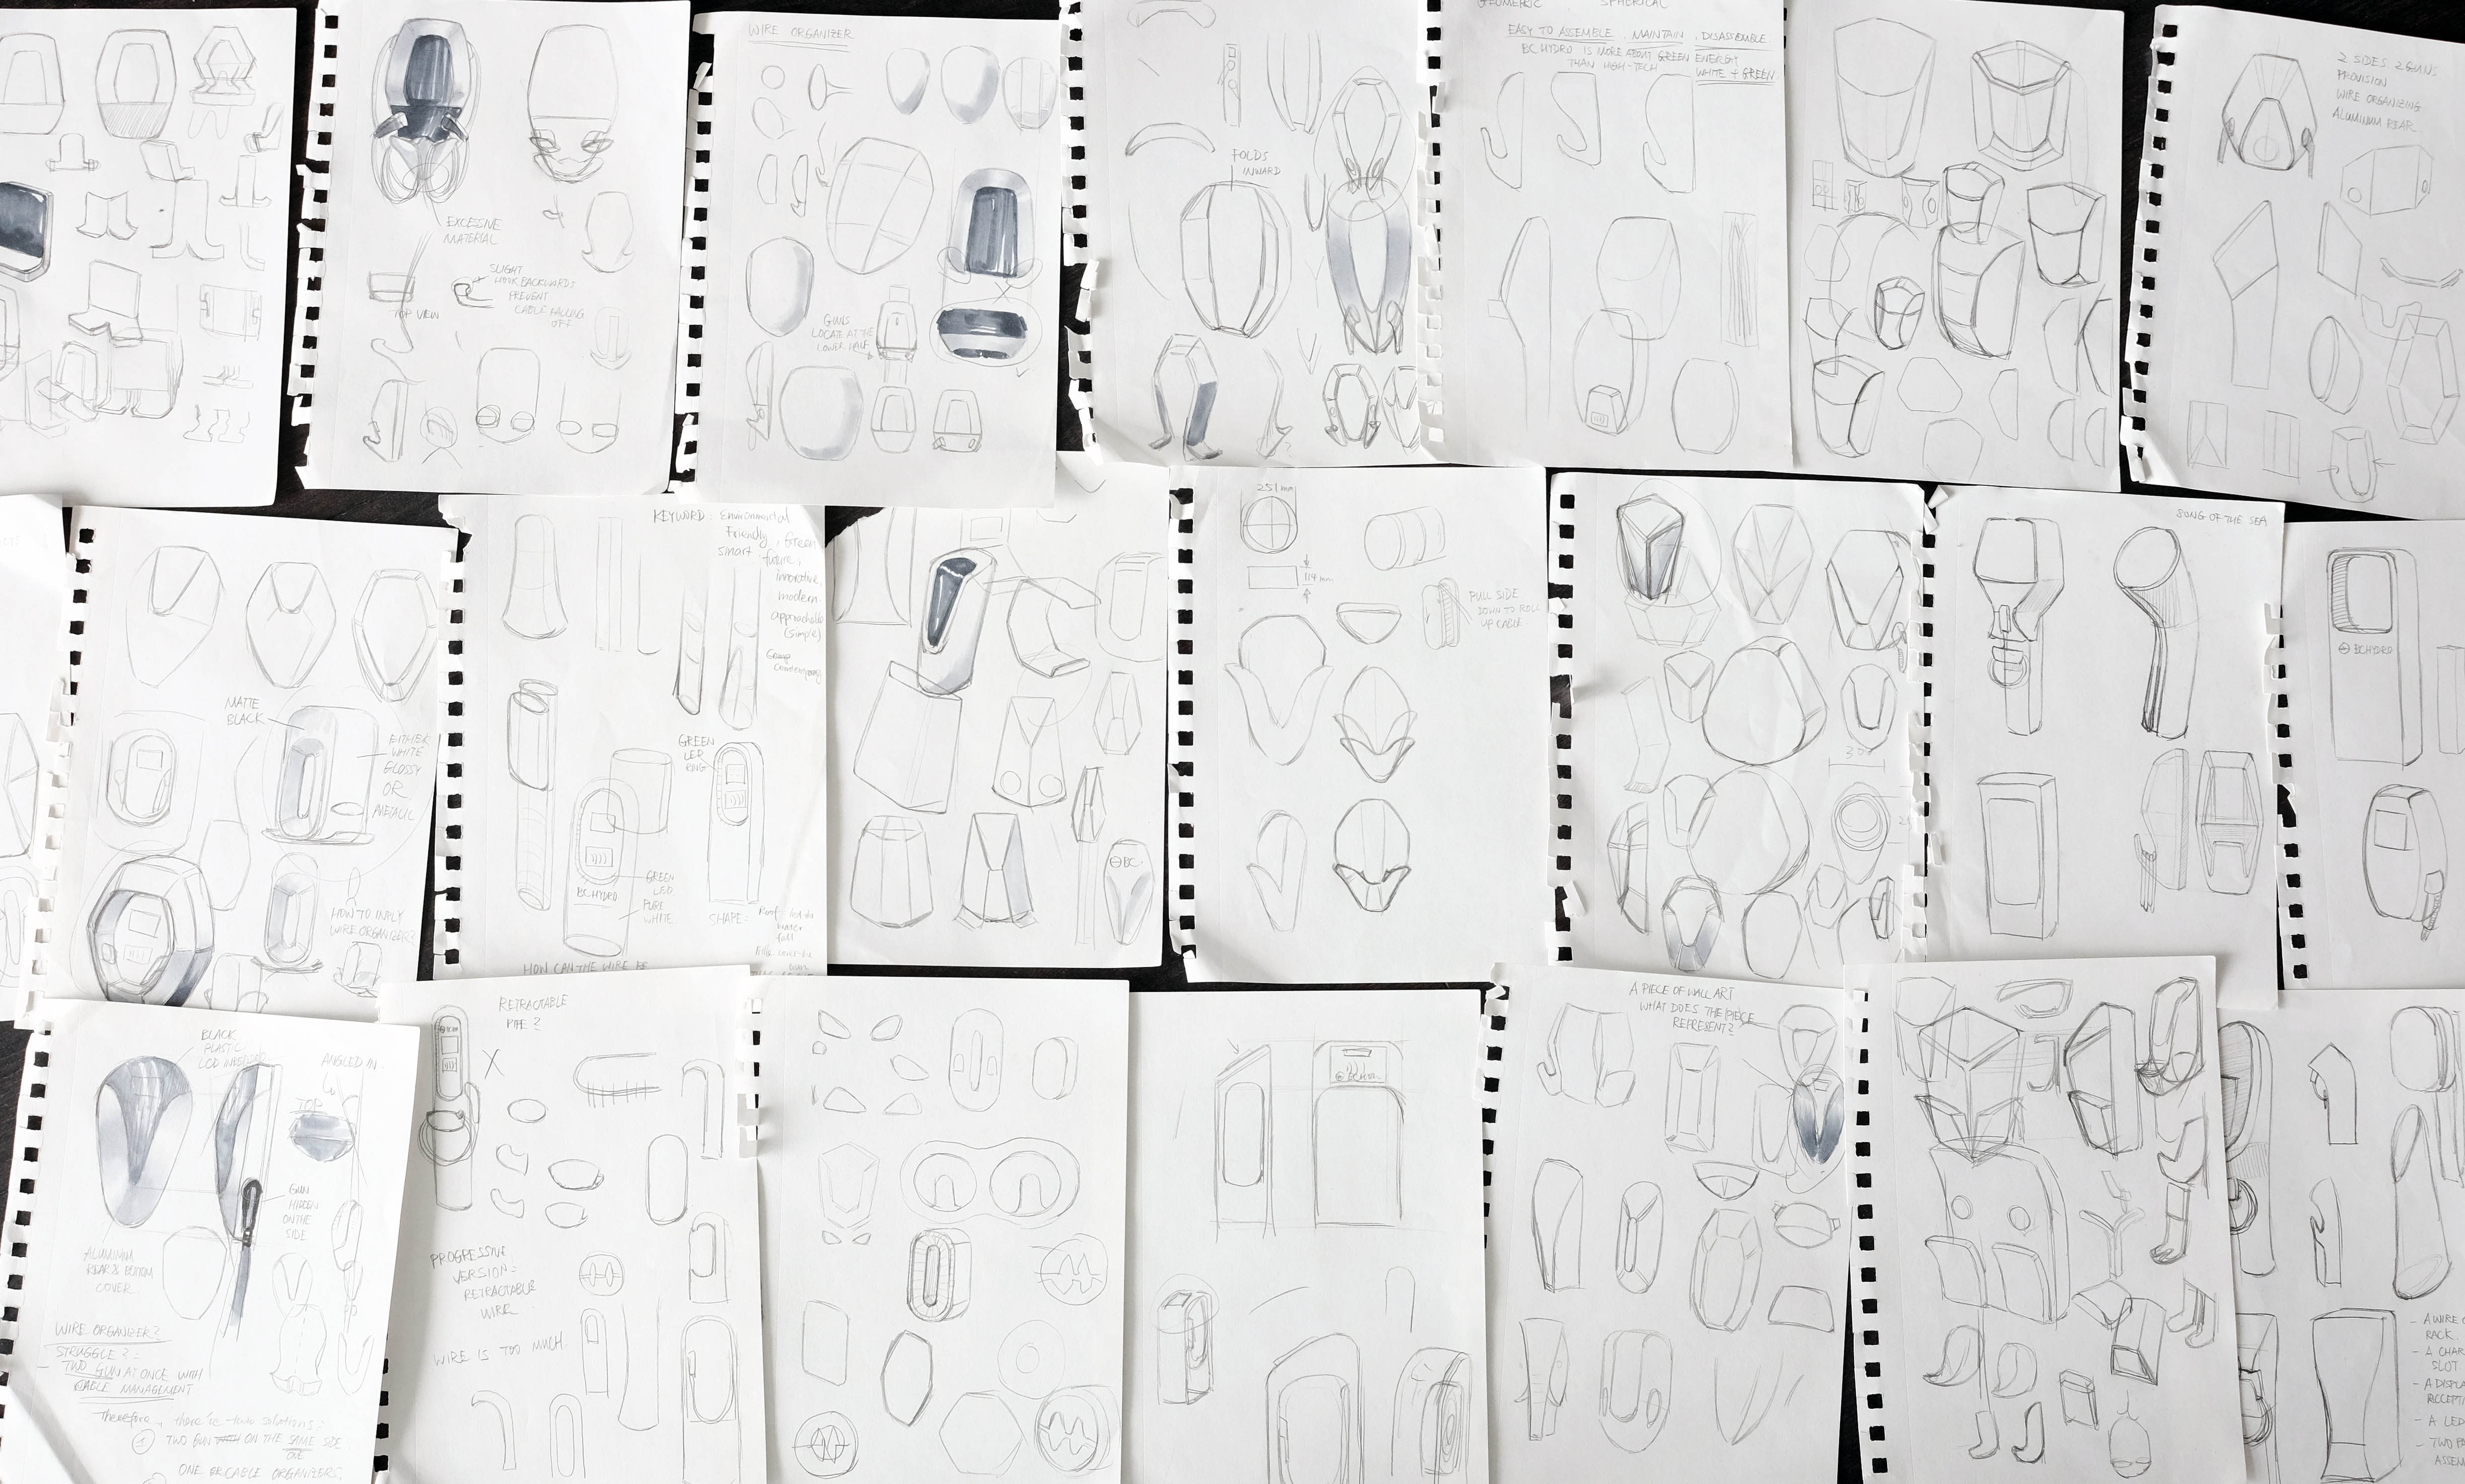 EXCESSIVE
MATERIAL
SLIGHT
HOOK BACKWARDS
PREVENT
CABLE FALLING
OFF
TOP VIEW
WIRE ORGANIZER
GUNS
LOCATE AT THE
LOWER HALF
FOLDS
INWARD
GEOMETRIC SPHERICAL
EASY TO ASSEMBLE, MAINTAIN, DISASSEMBLE.
BC HYDRO IS MORE ABOUT GREEN ENERGY
THAN HIGH-TECH
WHITE + GREEN
2 SIDES 2 GUNS
PROVISION
WIRE ORGANIZING
ALUMINUM REAR
MATTE
BLACK
EITHER
WHITE
GLOSSY
OR
METALIC
HOW TO IMPLY
WIRE ORGANIZER?
KEYWORD: Environmental
Friendly, Green
smart, future,
innovative,
modern.
approachable
(simple)
contemporary
GREEN
LED
RING
BC HYDRO
GREEN
LED
PURE
WHITE
SHAPE: Roof
water
fall
HOW CAN THE WIRE BE
BC
251mm
114 mm
PULL SIDE
DOWN TO ROLL
UP CABLE
30
SONG OF THE SEA
BC HYDRO
BLACK
PLASTIC
LCD
ANGLED IN
TOP
GUN
HIDDEN
ON THE
SIDE
ALUMINUM
REAR & BOTTOM
COVER
WIRE ORGANIZER?
STRUGGLE?:
TWO GUN AT ONCE WITH
CABLE MANAGEMENT
Therefore, there're two solutions:
① TWO GUN WITH ON THE SAME SIDE
ONE
ONE CABLE ORGANIZERS,
RETRACTABLE
PIPE?
X
PROGRESSIVE
VERSION:
RETRACTABLE
WIRE
WIRE IS TOO MUCH.
A PIECE OF WALL ART
WHAT DOES THE PIECE
REPRESENT?
- A WIRE
RACK
- A CHAR
SLOT
- A DISPLA
- A LED
- TWO
ASSEM